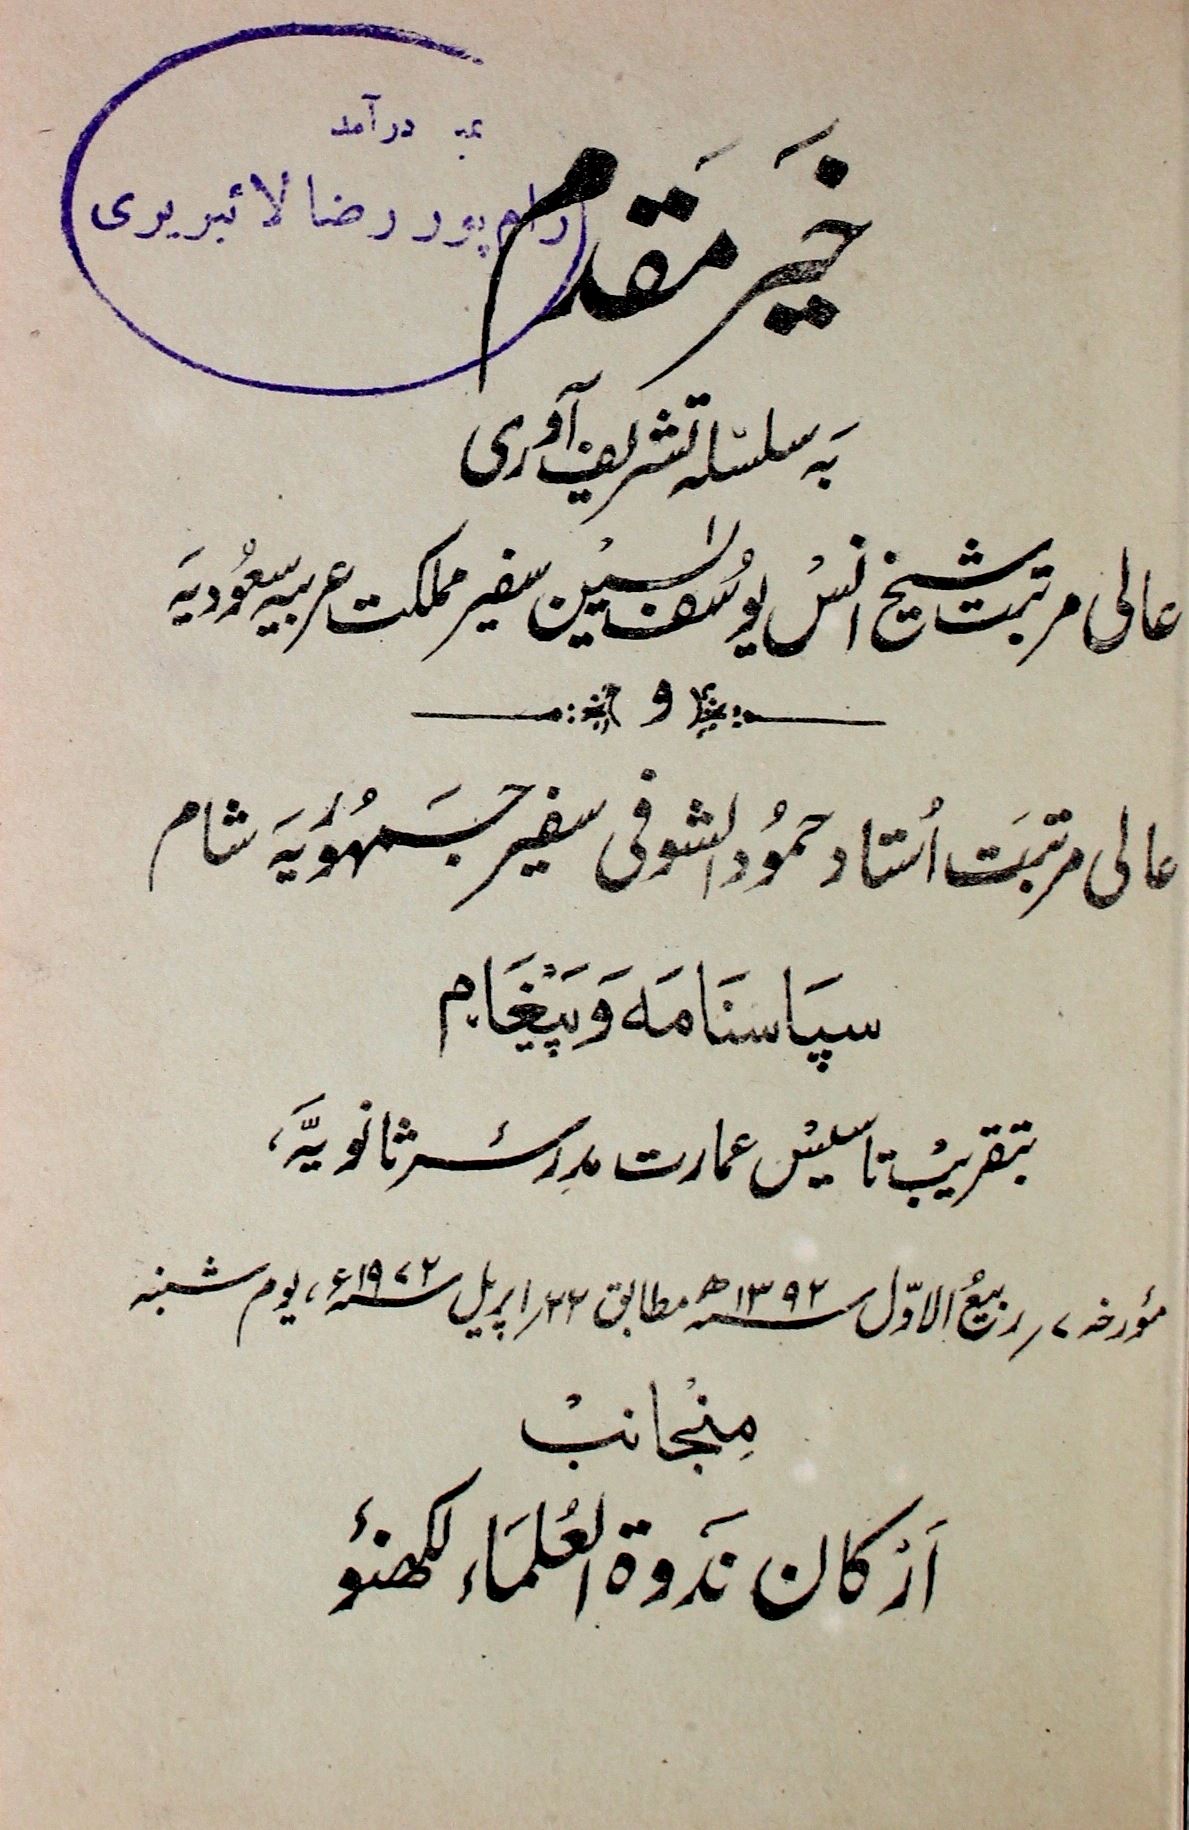 نمبر درآمد
رام پور رضا لائبریری
خَیر مَقدم
بہَ سلسلہ تشریف آوری
عالی مرتبت شیخ انسْ یوسُف یٰسیْن سفیر مملکت عربیہ سعُودیہَ
و
عالی مرتبَت اُستاد حمُود الشوفی سفیر جَمہُوریَہ شام
سپَاسنَامَہ وَ پَیْغَام
بتقریبْ تاسیسْ عمارت مدرِسۂ ثانویَّہ،
مؤرخہ ۷؍ ربیعُ الاوّل ۱۳۹۲ھ مطابق ۲۲؍ اپریل ۱۹۷۲ء، یوم شنبہ
مِنْجانبْ
اَرْکان نَدوۃ العُلمَاء لکھنؤ